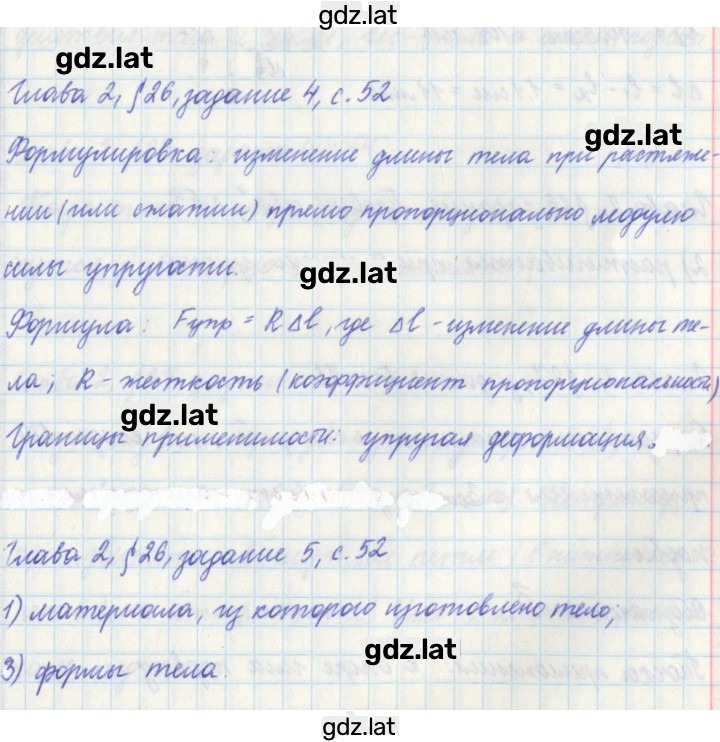 gdz.lat
gdz.lat
Глава 2, §26, задание 4, с. 52
gdz.lat
Формулировка: изменение длины тела при растяже-
нии (или сжатии) прямо пропорционально модулю
силы упругости.
gdz.lat
Формула: Fупр = RΔl, где Δl - изменение длины те-
ла; R - жесткость (коэффициент пропорциональности)
gdz.lat
Границы применимости: упругая деформация.
Глава 2, §26, задание 5, с. 52
1) материала, из которого изготовлено тело;
gdz.lat
3) формы тела.
gdz.lat